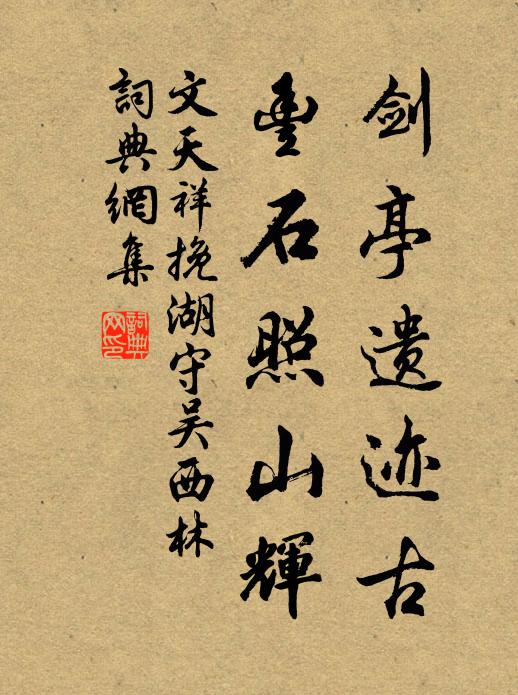 剑亭遗迹古
丰石照山輝
文天祥挽湖守吴西林
詞典網集
詞典網印